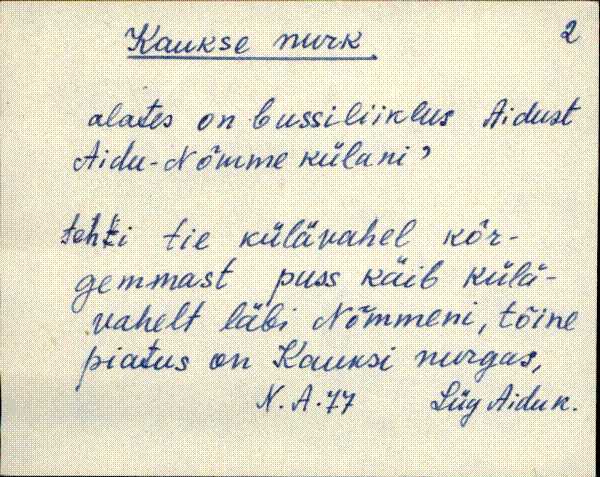 Kaukse nurk
2
alates on bussiliiklus Aidust
Aidu-Nõmme külani,
tehti tie külävahel kõr-
gemmast puss käib külä-
vahelt läbi Nõmmeni, tõine
piatus on Kauksi nurgas,
N. A. 77 Lüg Aidu k.